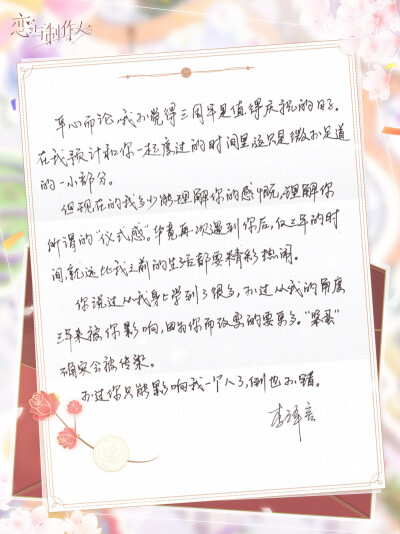 恋与制作人
平心而论，我不觉得三周年是值得庆祝的日子。
在我预计和你一起度过的时间里，这只是微不足道
的一小部分。
但现在的我多少能理解你的感慨，理解你
所谓的“仪式感”。毕竟再次遇到你后，仅三年的时
间，就远比我之前的生活都要精彩热闹。
你说过从我身上学到了很多，不过从我的角度
三年来被你影响，因为你而改变的要更多。“笨蛋”
确实会被传染。
不过你只能影响我一个人了，倒也不错。
李泽言